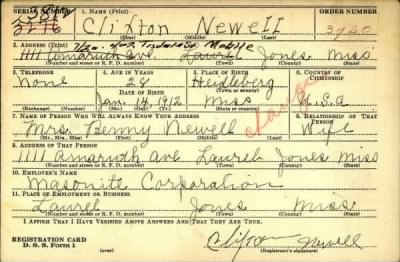 SERIAL NUMBER 1. NAME (Print) ORDER NUMBER
Clifton Newell
(First) (Middle) (Last)
2. ADDRESS (Print)
1111 Amaruth Ave. Laurel Jones Miss
(Number and street or R. F. D. number) (Town) (County) (State)
3. TELEPHONE 4. AGE IN YEARS 5. PLACE OF BIRTH 6. COUNTRY OF CITIZENSHIP
None 28 Heidleberg
DATE OF BIRTH (Town or county)
Jan. 14, 1912 Miss U.S.A
(Exchange) (Number) (Mo.) (Day) (Yr.) (State or country)
7. NAME OF PERSON WHO WILL ALWAYS KNOW YOUR ADDRESS 8. RELATIONSHIP OF THAT PERSON
Mrs. Benny Newell Wife
(Mr., Mrs., Miss) (First) (Middle) (Last)
9. ADDRESS OF THAT PERSON
1111 Amaruth Ave Laurel Jones Miss
(Number and street or R. F. D. number) (Town) (County) (State)
10. EMPLOYER'S NAME
Masonite Corporation
11. PLACE OF EMPLOYMENT OR BUSINESS
Laurel Jones Miss
(Number and street or R. F. D. number) (Town) (County) (State)
I AFFIRM THAT I HAVE VERIFIED ABOVE ANSWERS AND THAT THEY ARE TRUE.
REGISTRATION CARD
D. S. S. Form 1 (over) Clifton Newell
(Registrant's signature)